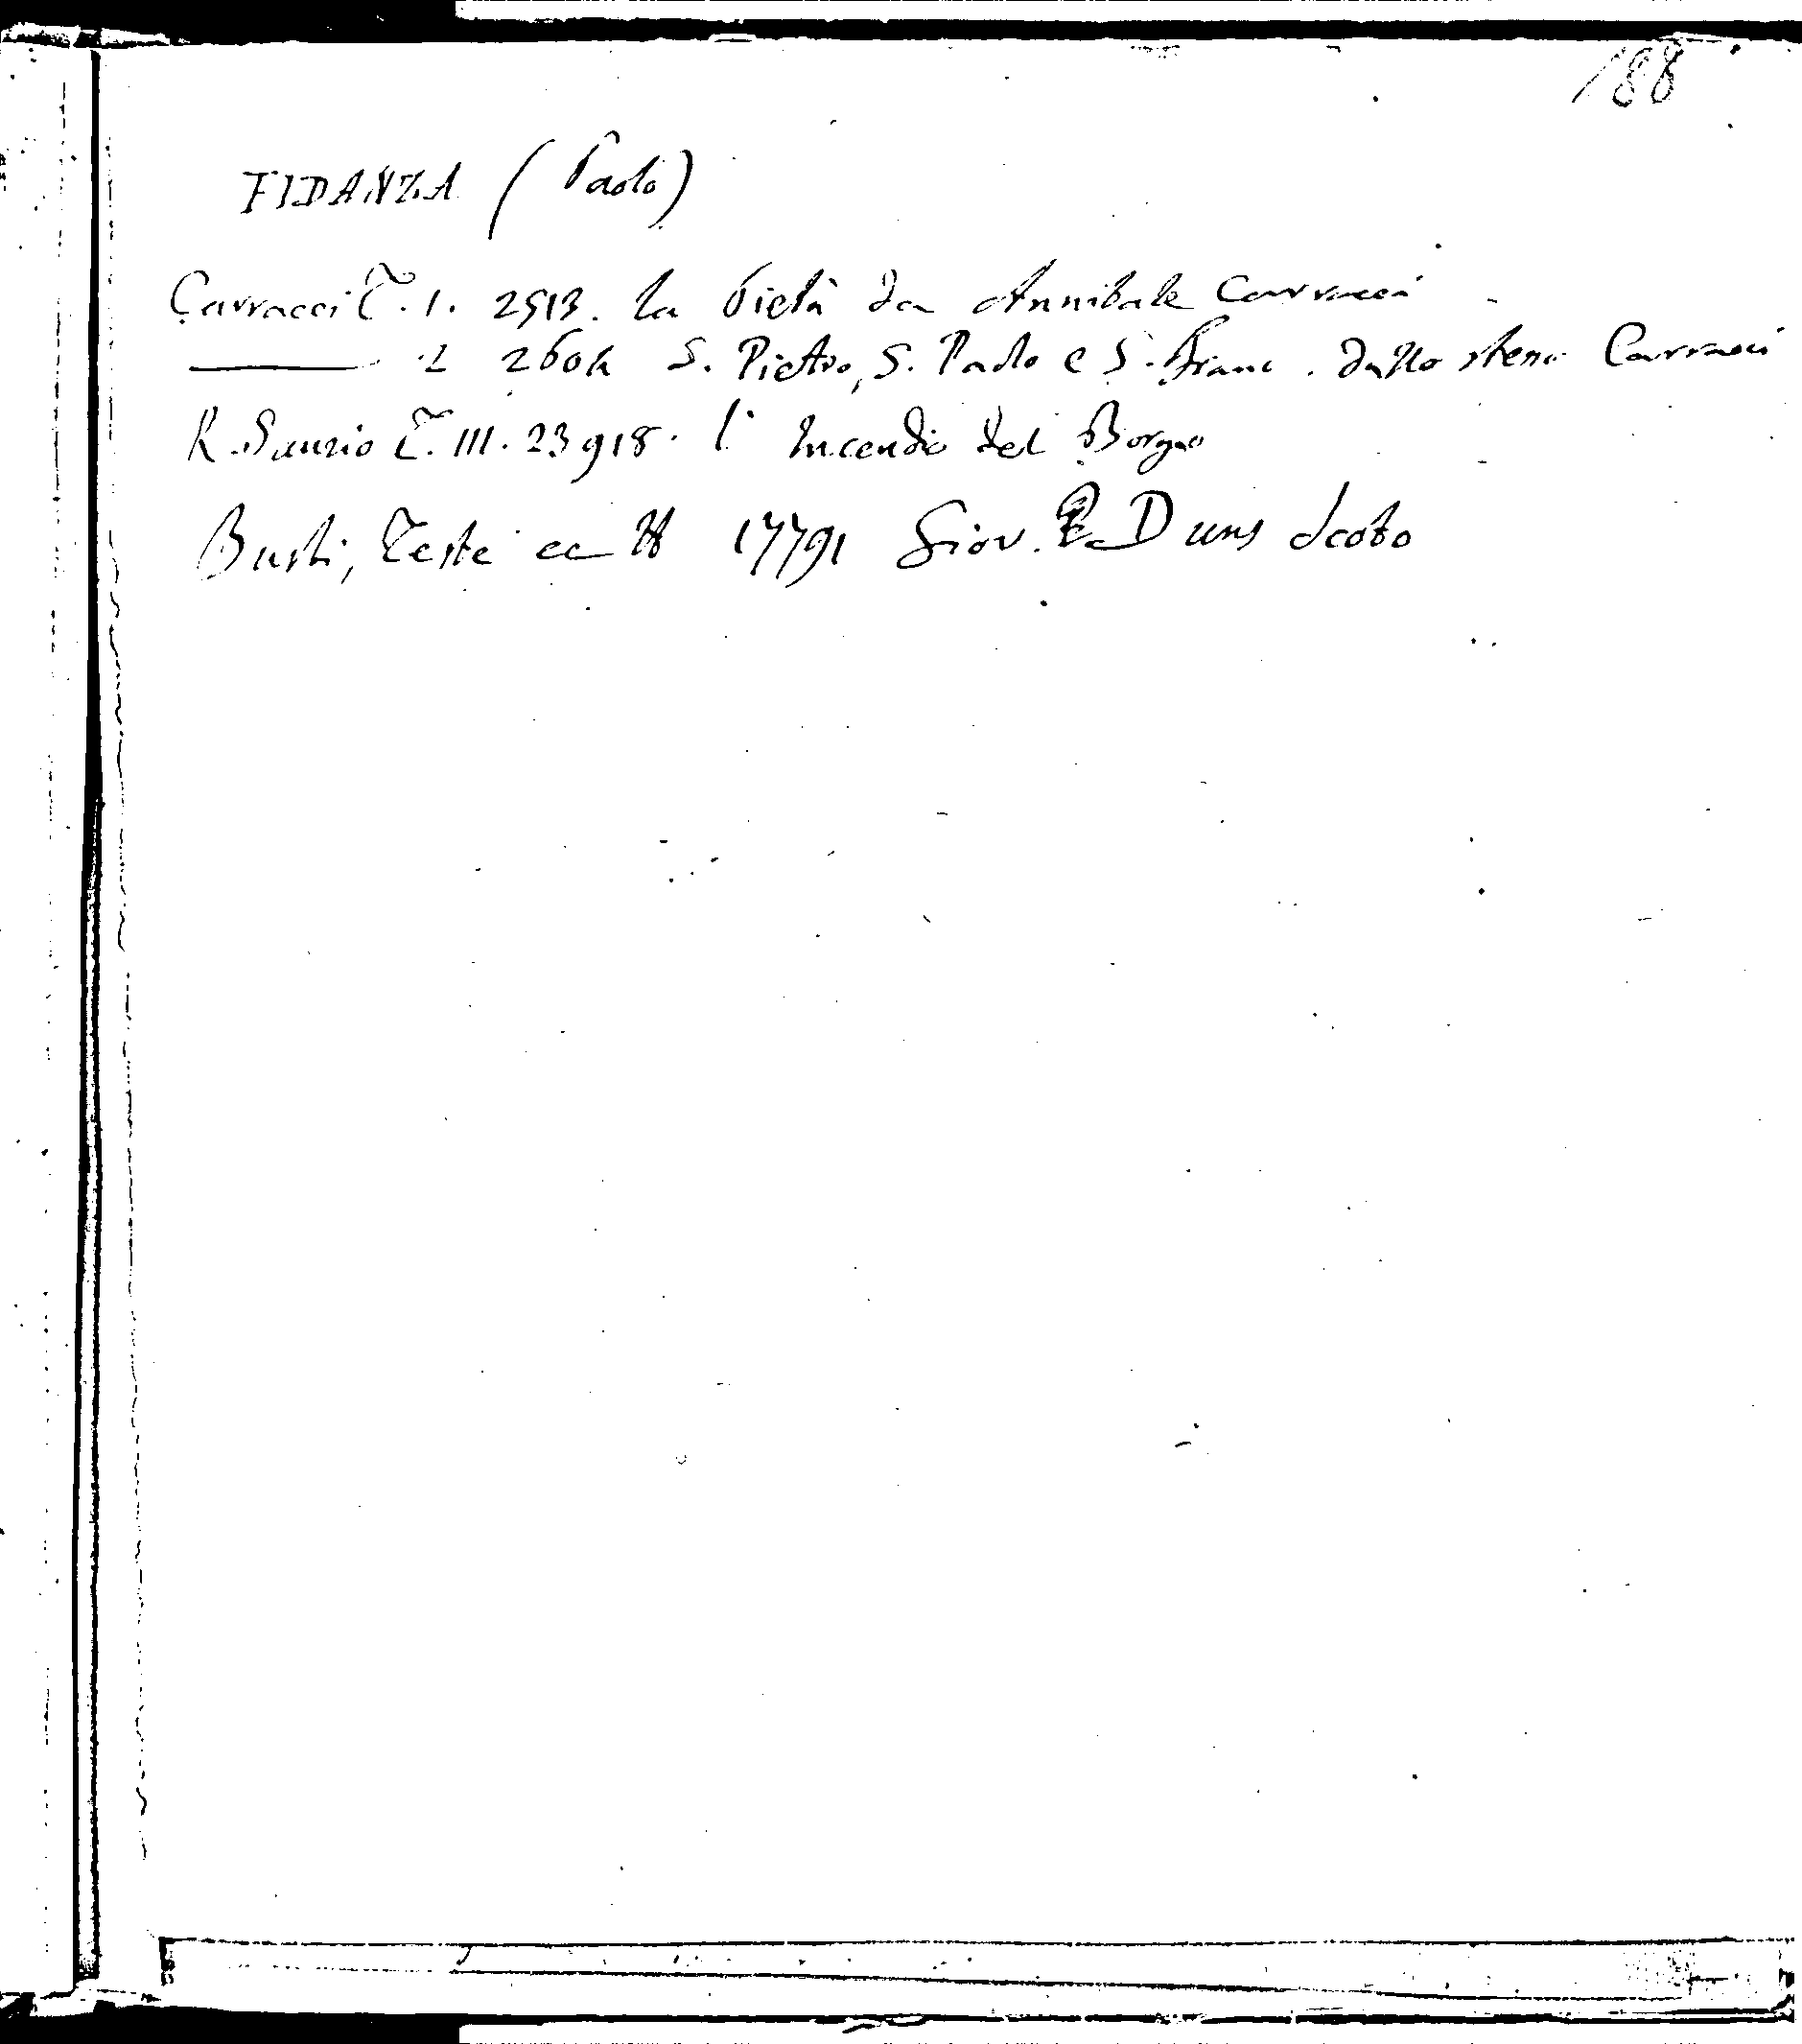 188
FIDANZA (Paolo)
Carracci T. 1. 2513. La Pietà da Annibale Carracci
——— 2 2604 S. Pietro, S. Paolo e S. Franc. dallo stesso Carracci
R. Sanzio T. III. 23918. l'Incendio del Borgo
Busti, Teste ec 17791 Giov. Duns Scoto